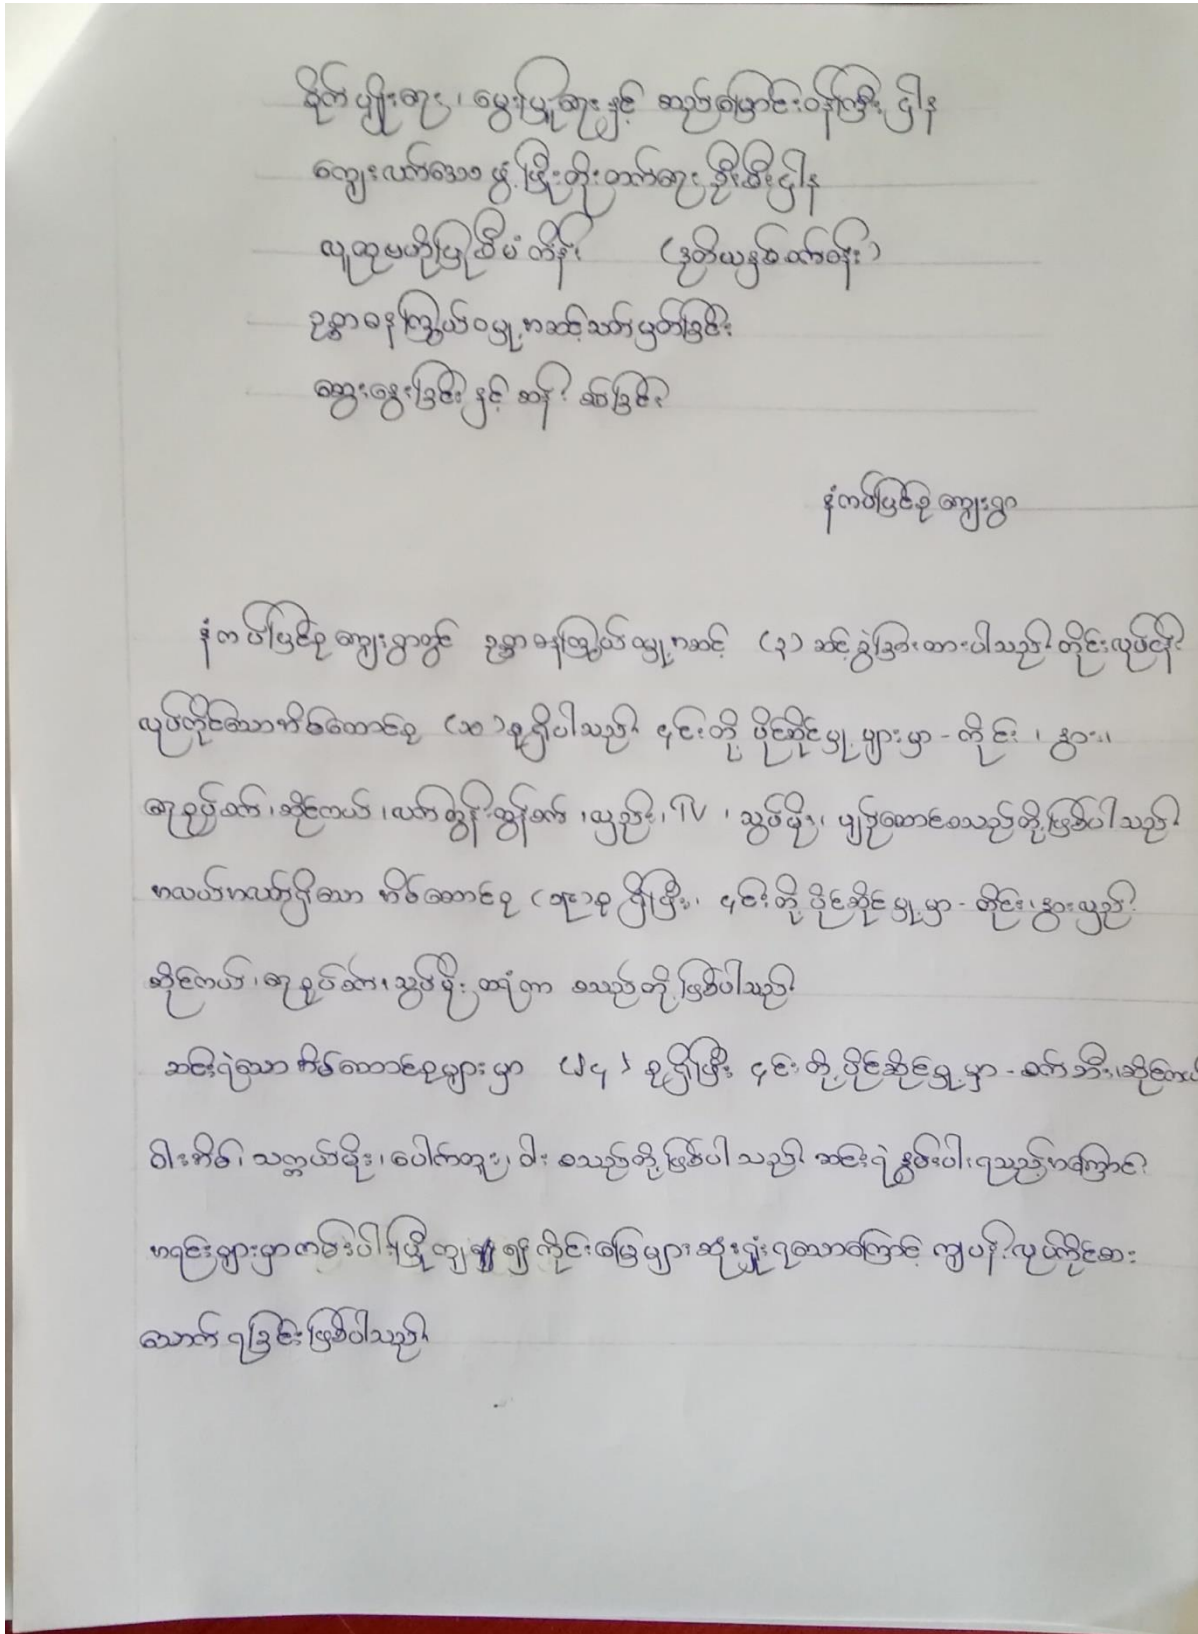 စိုက်ပျိုးရေး၊ မွေးမြူရေးနှင့် ဆည်မြောင်းဝန်ကြီးဌာန
ကျေးလက်ဒေသဖွံ့ဖြိုးတိုးတက်ရေးဦးစီးဌာန
လူထုဗဟိုပြုစီမံကိန်း (ဒုတိယနှစ်စက်ဝန်း)
ဥစ္စာဓနကြွယ်ဝမှုအဆင့်သတ်မှတ်ခြင်း
ဆွေးနွေးခြင်းနှင့် ဆန်းစစ်ခြင်း
နံကပ်ပြင်စုကျေးရွာ
နံကပ်ပြင်စုကျေးရွာတွင် ဥစ္စာဓနကြွယ်ဝမှုအဆင့် (၃) ဆင့်ခွဲခြားထားပါသည်။ ကိုင်းလုပ်ငန်း
လုပ်ကိုင်သောအိမ်ထောင်စု (၁၀) စုရှိပါသည်။ ၎င်းတို့ပိုင်ဆိုင်မှုများမှာ - ကိုင်း ၊ နွား ၊
ရေစုပ်စက် ၊ ဆိုင်ကယ် ၊ လက်တွန်းထွန်စက် ၊ လှည်း ၊ TV ၊ သွပ်မိုး ၊ ပျဉ်ထောင်စသည်တို့ဖြစ်ပါသည်။
အလယ်အလတ်ရှိသော အိမ်ထောင်စု စုရှိပြီး၊ ၎င်းတို့ပိုင်ဆိုင်မှုမှာ - ကိုင်း ၊ နွားလှည်း
ဆိုင်ကယ် ၊ ရေစုပ်စက် ၊ သွပ်မိုး ထရံကာ စသည်တို့ဖြစ်ပါသည်။
ဆင်းရဲသောအိမ်ထောင်စုများမှာ (၂၄) စုရှိပြီး ၎င်းတို့ပိုင်ဆိုင်မှုမှာ - စက်ဘီး ၊ ဆိုင်ကယ်
ဝါးအိမ် ၊ သက္ကယ်မိုး ၊ ပေါက်တူး ၊ ဓါး စသည်တို့ဖြစ်ပါသည်။ ဆင်းရဲနွမ်းပါးရသည့်အကြောင်း
အရင်းများမှာကမ်းပါးပြိုကျ၍ ကိုင်းမြေများဆုံးရှုံးရသောကြောင့် ကျပန်းလုပ်ကိုင်စား
သောက်ရခြင်းဖြစ်ပါသည်။